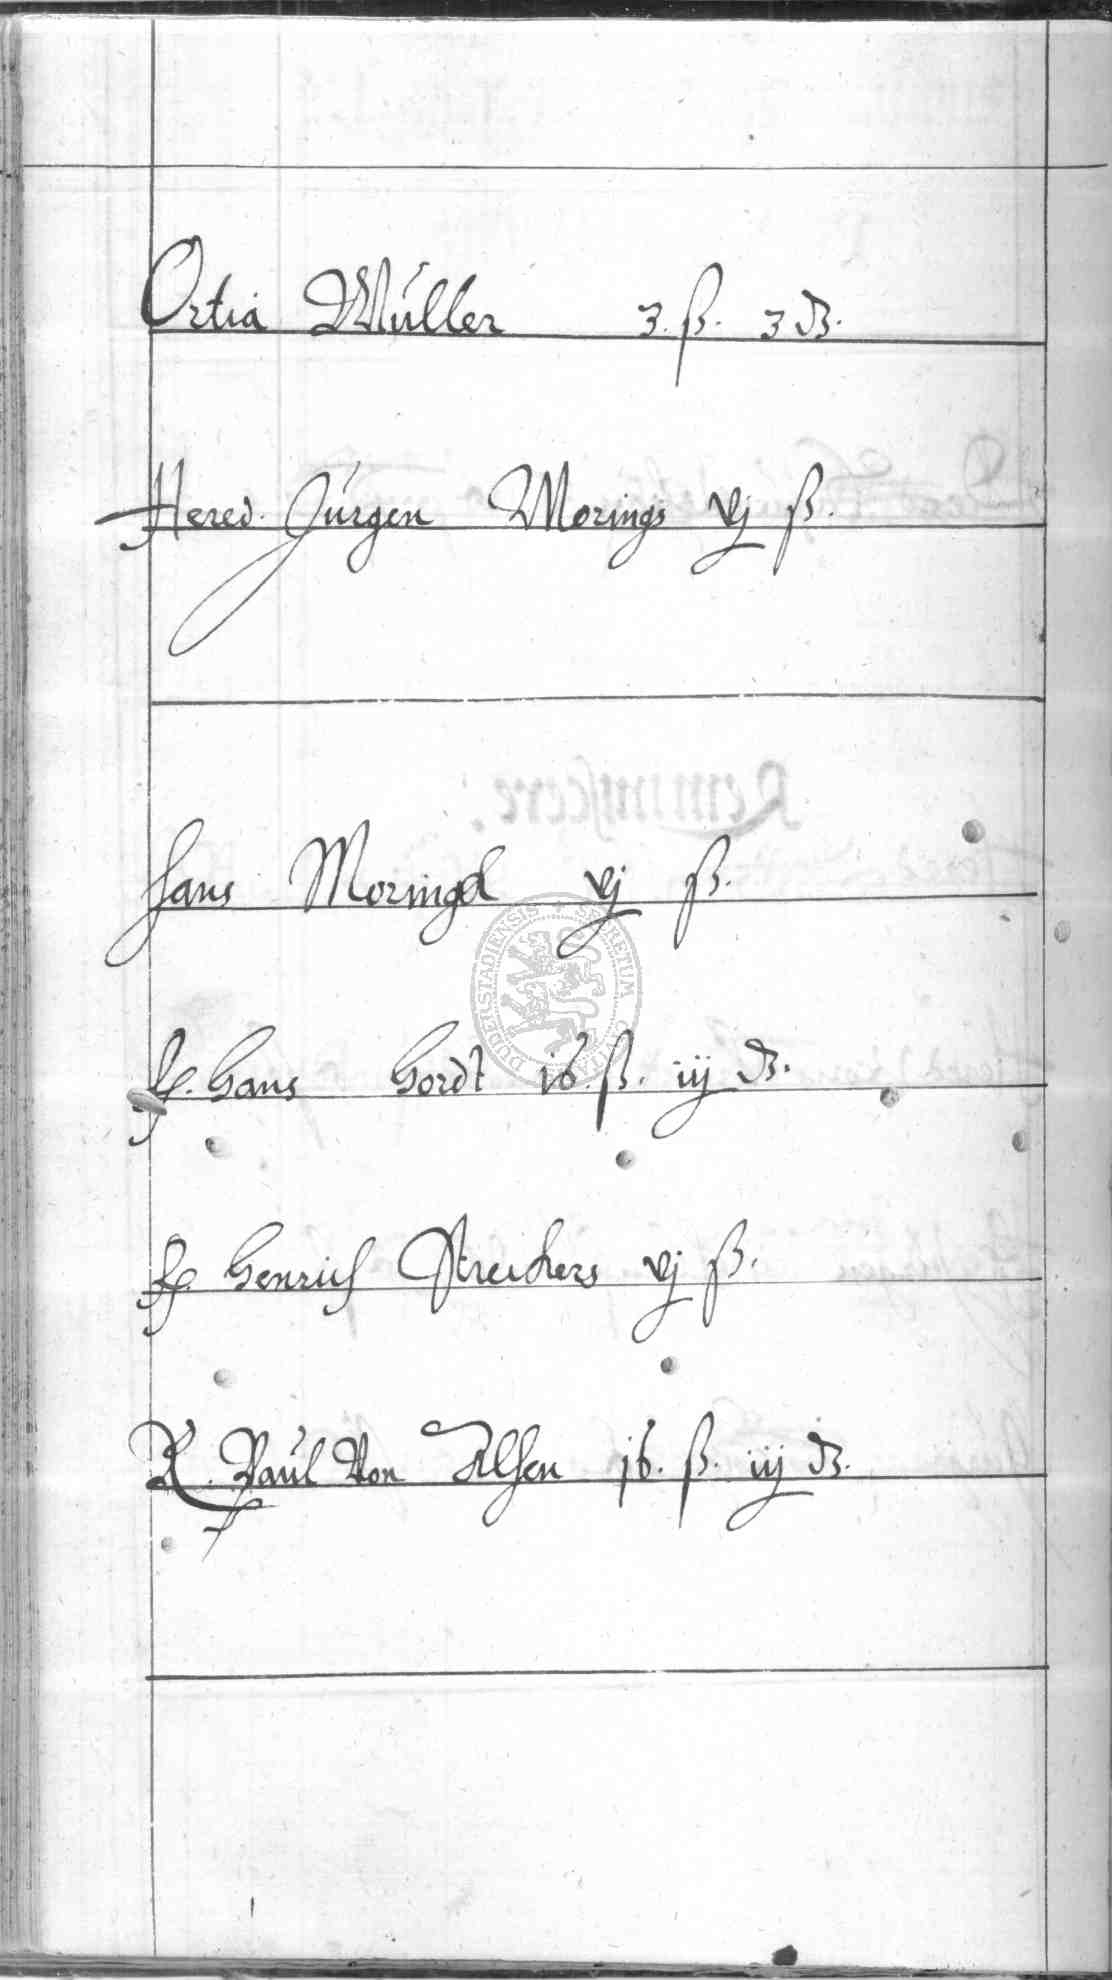 Ortia Müller 3. ß. 3 ₰.
Hered. Jürgen Morings vj ß.
Hans Moringk vj ß.
H. Hans Hordt 16. ß. iij ₰.
H. Henrich Streichers vj ß.
R. Paul Von Alsen 16. ß. iij ₰.
SECRETUM CIVITA DUDERSTADIENSIS